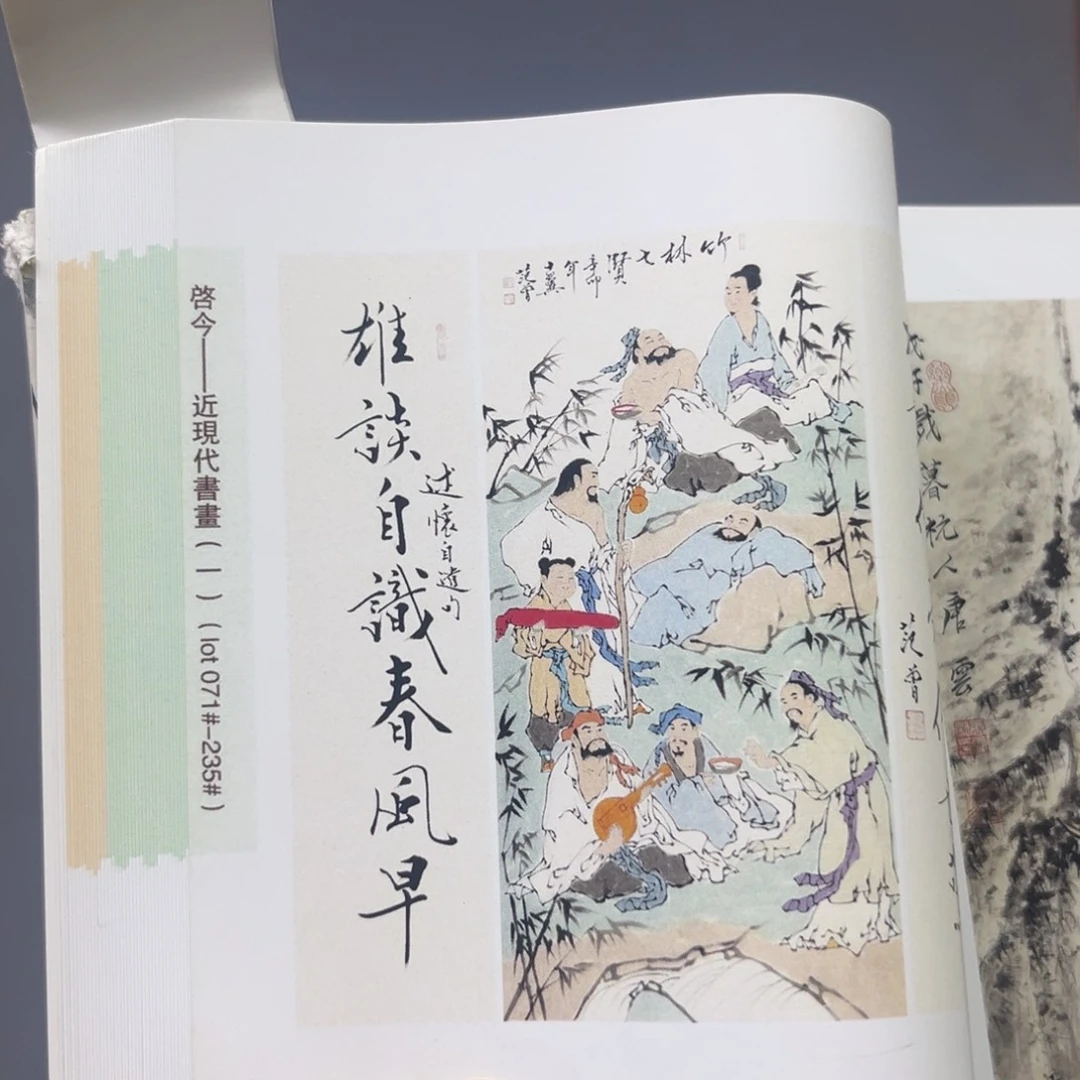 啓今——近現代書畫(一)(lot 071#–235#)
竹林七賢
辛卯
年
十翼
范曾
述懷自遣句
雄談自識春風早
范曾
子歲暮杭人唐雲